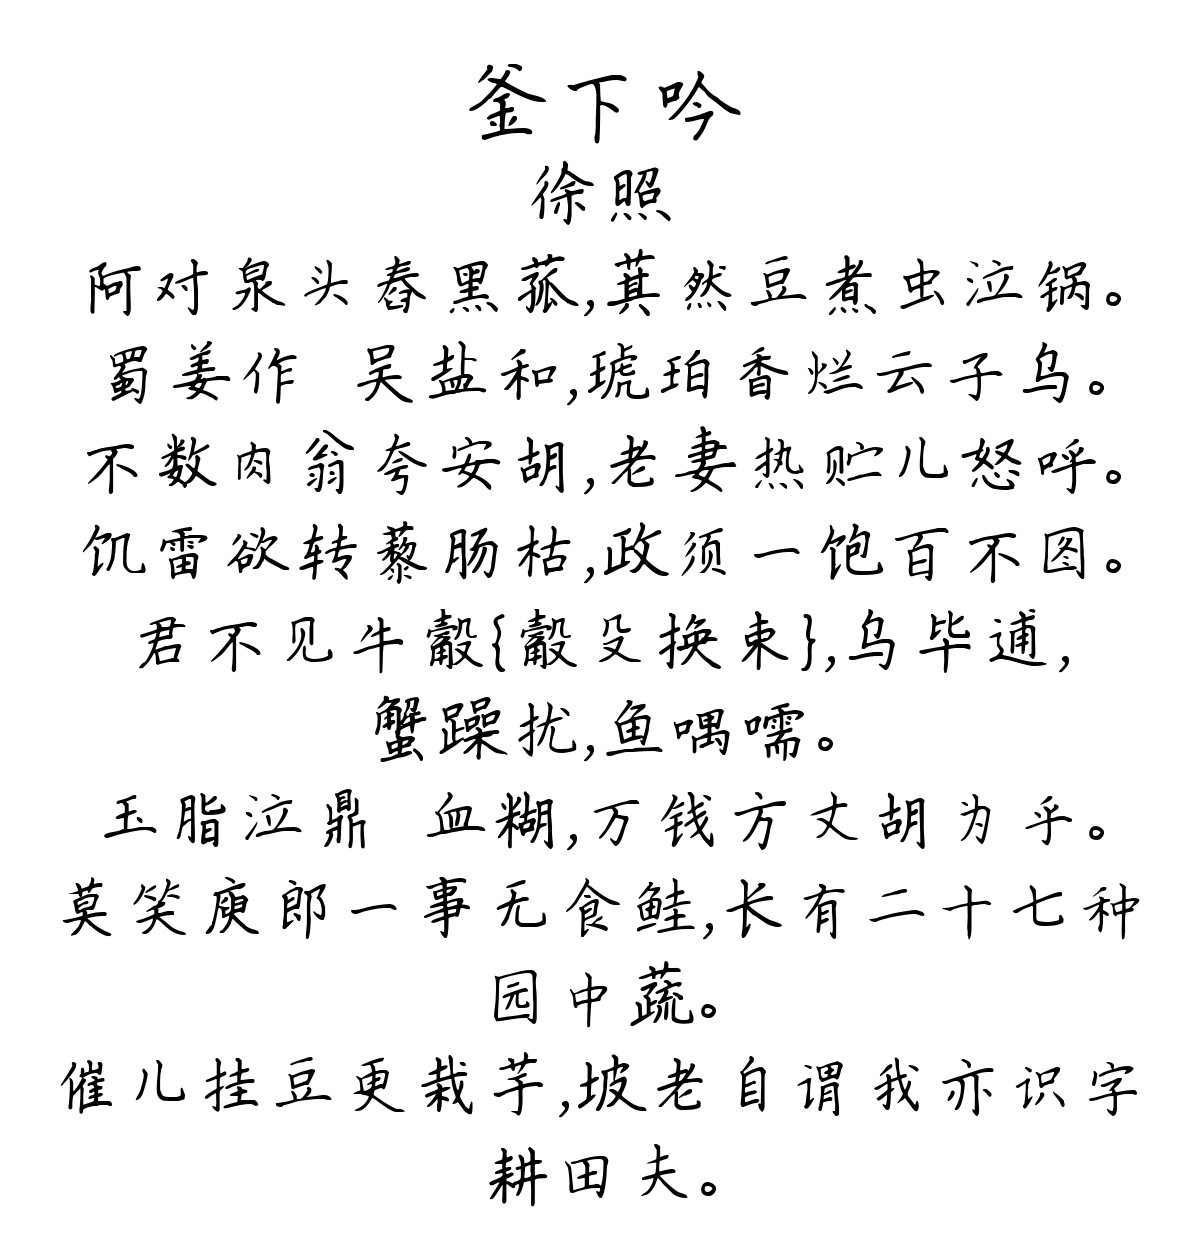 釜下吟
徐照
阿对泉头舂黑菰,萁然豆煮虫泣锅。
蜀姜作 吴盐和,琥珀香烂云子乌。
不数肉翁夸安胡,老妻热贮儿怒呼。
饥雷欲转藜肠枯,政须一饱百不图。
君不见牛觳{觳殳换束},乌毕逋,
蟹躁扰,鱼喁嚅。
玉脂泣鼎 血糊,万钱方丈胡为乎。
莫笑庾郎一事无食鲑,长有二十七种
园中蔬。
催儿挂豆更栽芋,坡老自谓我亦识字
耕田夫。